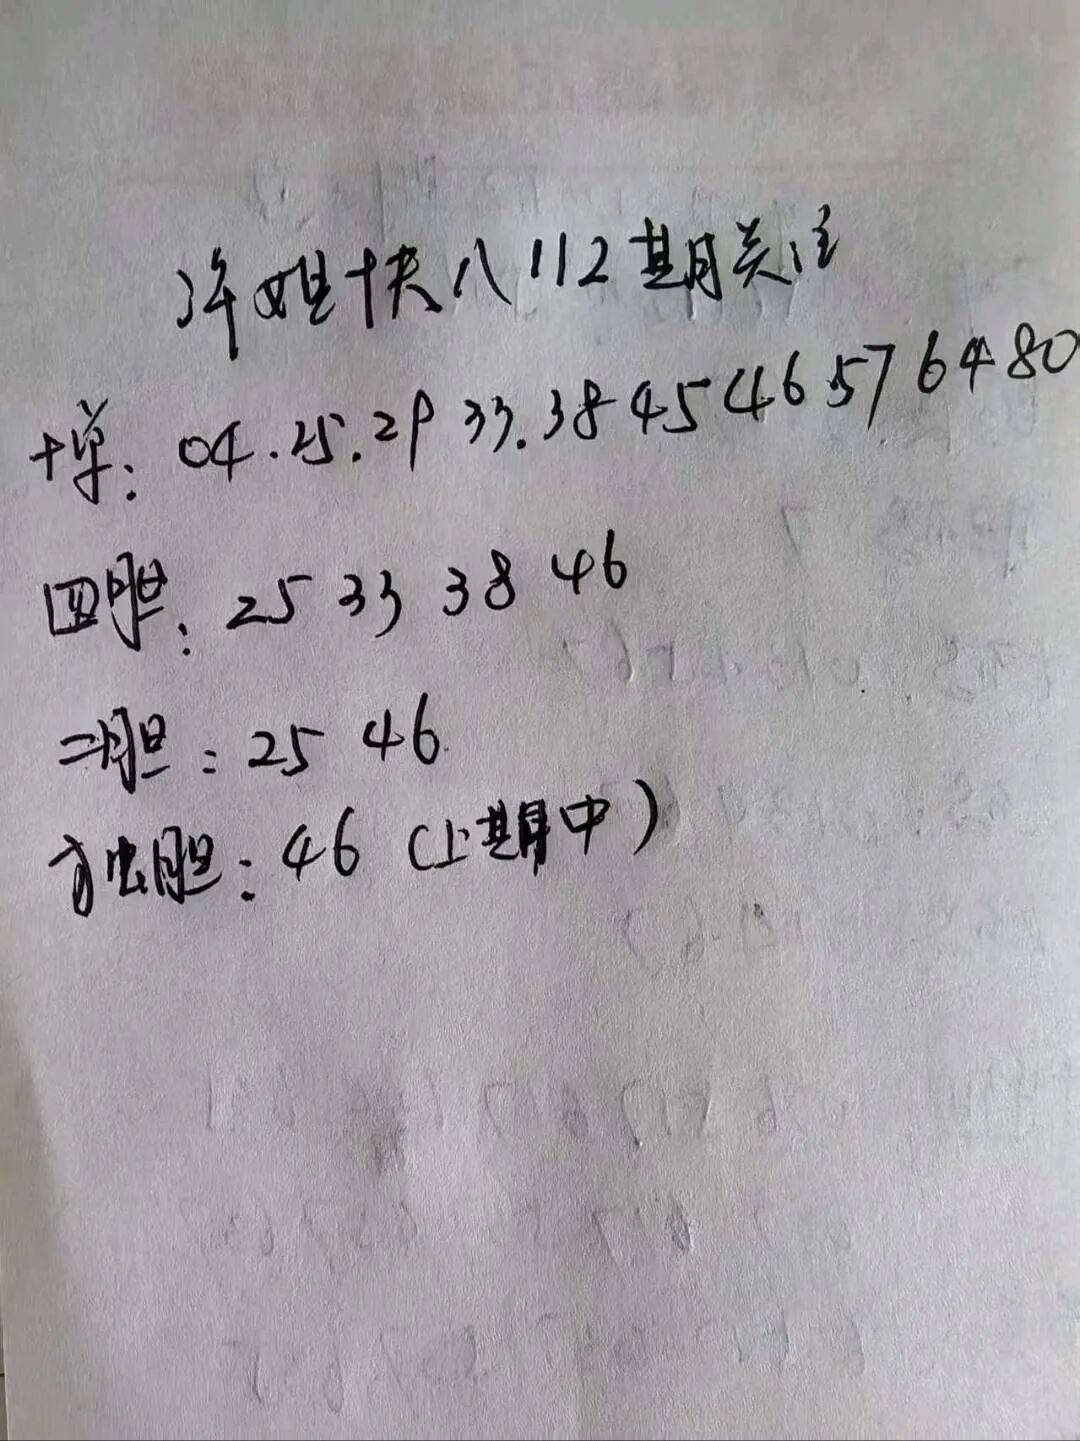 许姐快八112期关注
十单: 04.25.29 33.38 45 46 57 64 80
四胆: 25 33 38 46
二胆: 25 46
独胆: 46 (上期中)